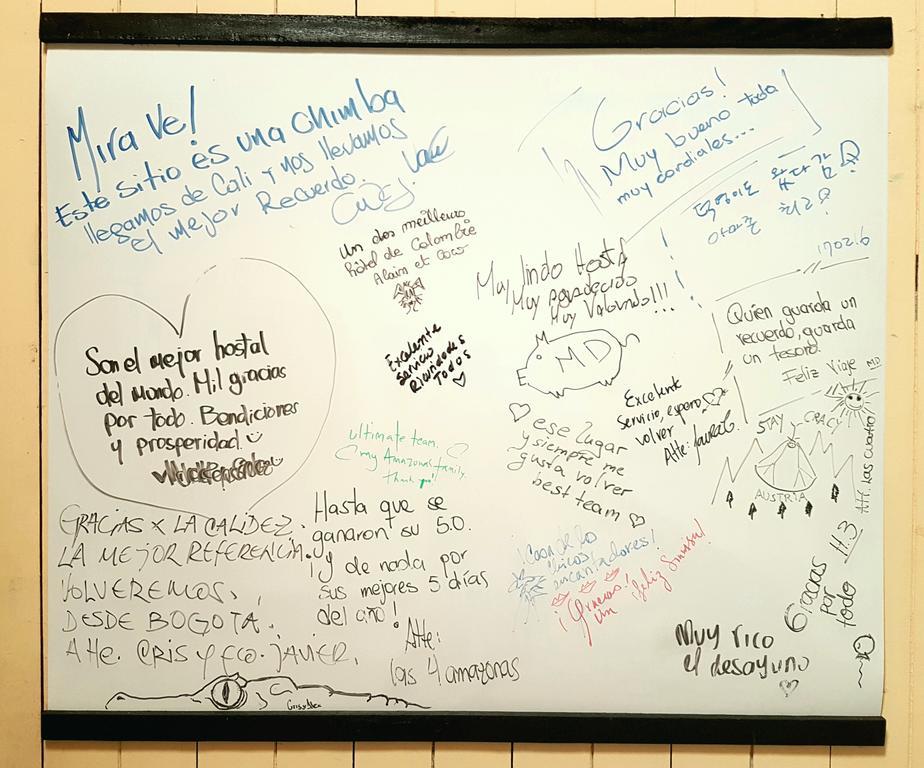 Mira Ve!
Este sitio es una chimba
llegamos de Cali y nos llevamos
el mejor Recuerdo.
Gracias!
Muy bueno todo
muy cordiales...
170216
un des meilleurs
hôtel de Colombie
Alain et Coco
Muy lindo Hostal
Muy agradecido
Muy Volando!!!
MD
Excelente
servicio
Ricundodes
Todos
Quien guarda un
recuerdo, guarda
un tesoro.
Feliz Viaje MD
Son el mejor hostal
del mundo. Mil gracias
por todo. Bendiciones
y prosperidad.
Excelente
servicio, espero
volver
Atte: Laura G.
ese lugar
y siempre me
gusta volver
best team
STAY CRAZY
AUSTRIA
Att. Las cuatro
ultimate team.
my Amazonas family.
Thank you!
GRACIAS X LA CALIDEZ.
LA MEJOR REFERENCIA.
VOLVEREMOS.
DESDE BOGOTA.
Atte. CRIS Y FCO. JAVIER.
Hasta que se
ganaron su 5.0.
¡y de nada por
sus mejores 5 días
del año!
Atte:
las 4 amazonas
¡Gracias!
un ¡feliz
Muy rico
el desayuno
Gracias
por
todo H.3